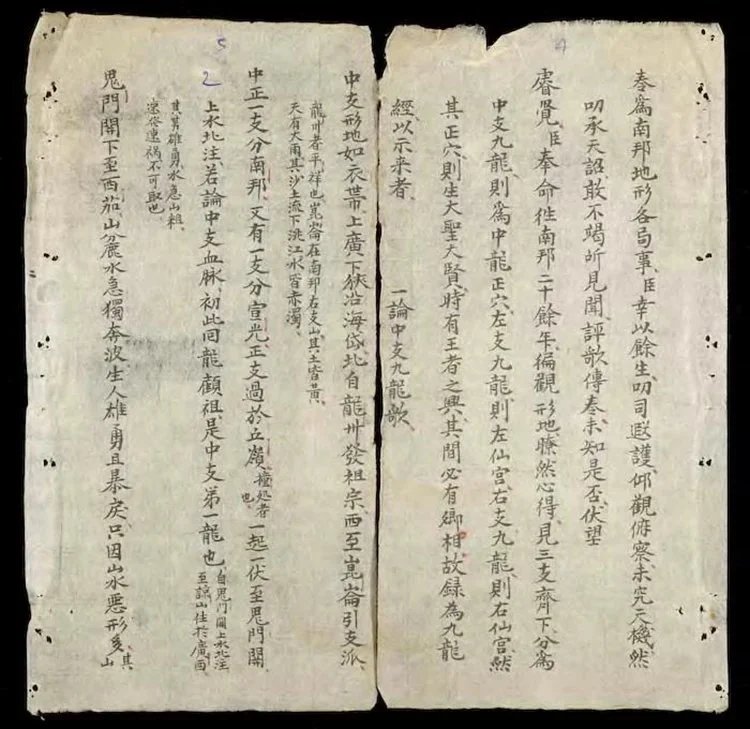 奏爲南邦地形各局事臣幸以餘生叨司遐護仰觀俯察未究天機然
叨承天詔敢不竭所見聞評歌傳奏未知是否伏望
睿覺臣奉命往南邦二十餘年徧觀形地瞭然心得見三支齊下分爲
中支九龍則爲中龍正穴左支九龍則左仙宮右支九龍則右仙宮然
其正穴則生大聖大賢時有王者之興其間必有鄉相故録為九龍
經以示来者 一論中支九龍歌
中支形地如衣帶上廣下狹沿海岱北自龍州發祖宗西至崑崙引支派
龍州者平祥也崑崙在南邦右支山其土皆黄
天有大雨其沙土流下洮江水皆赤濁
中正一支分南邦又有一支分宣光正支過於丘嶺撞処者也一起一伏至鬼門関
上水北注若論中支血脉初此回龍顧祖是中支第一龍也自鬼門関上水北注至諒山住於廣西
鬼門関下至西茄山麄水急獨奔波生人雄勇且暴戾只因山水悪形多其山
其勇雄勇水急山粗
速發速禍不可取也
5
2